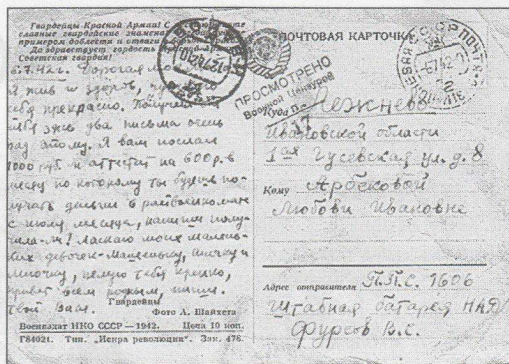 Гвардейцы Красной Армии! С
славные гвардейские знамена
примером доблести и отваги
Да здравствует гордость
Советская гвардия!
6.7.42 г. Дорогая
Я жив и здоров,
себя прекрасно. Получил
тебя уже два письма очень
рад этому. Я вам послал
1000 руб. и аттестат на 600 р. в
месяц по которому ты будешь по-
лучать деньги в райвоенкомате
с июля месяца, напиши полу-
чила-ли? Ласкаю моих малень-
ких девочек
целую тебя крепко,
привет всем родным, пиши.
Твой Вася.
Гвардейцы
Фото А. Шайхета
Воениздат НКО СССР — 1942. Цена 10 коп.
Г84021. Тип. „Искра революции“. Зак. 476.
ПОЧТОВАЯ КАРТОЧКА
ПРОСМОТРЕНО
Военной Цензурой
Куда г. Вежнево
Ивановской области
1ая Гусевская ул. д. 8
Кому Арбековой
Любови Ивановне
Адрес отправителя П.П.С. 1606
Штабная батарея НАД
Фурсов В.С.